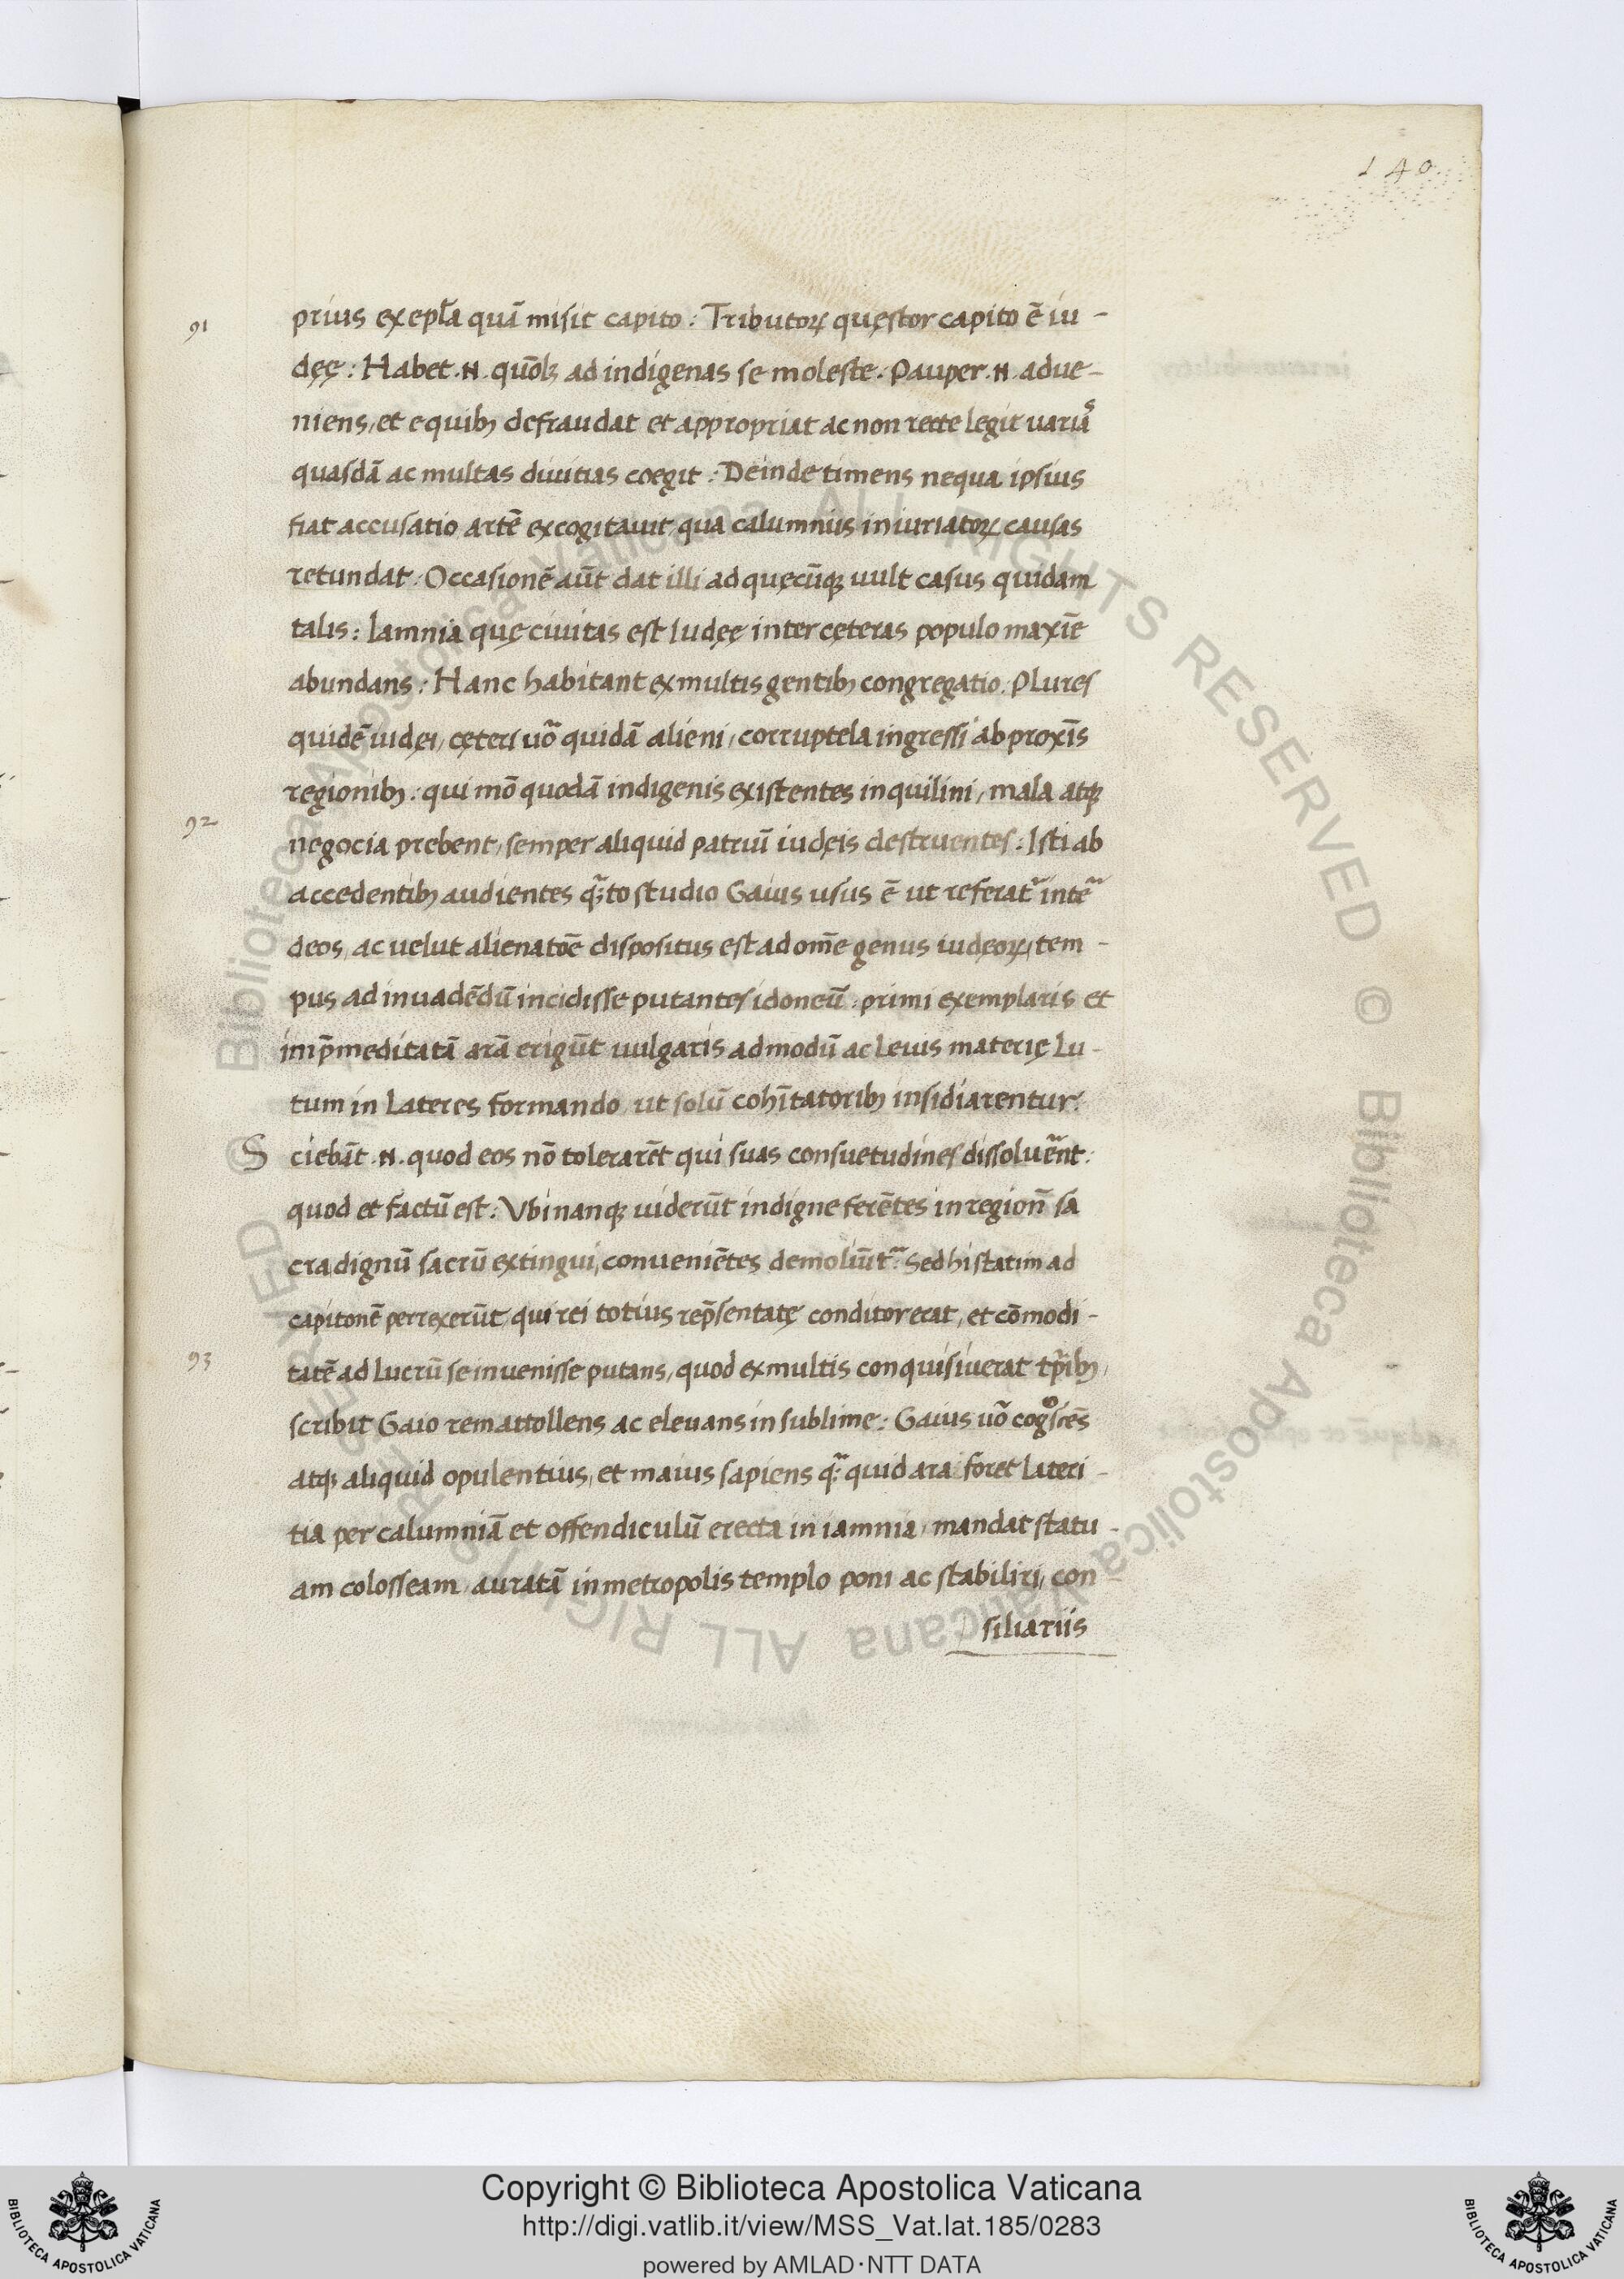 140
91
prius exẽpla quã misit capito: Tributoꝝ quęstor capito ẽ iu-
dęę: Habet .N. ad indigenas se moleste. Pauper .N. adue-
niens, et e quibꝫ defraudat et appropriat ac non recte legit uariãs
quasdã ac multas diuitias coegit: Deinde timens nequa ipsius
fiat accusatio artẽ excogitauit, qua calumniis iniuriatoꝝ causas
retundat. Occasionẽ aũt dat illi ad quęcũqꝫ uult casus quidam
talis: Iamnia quę ciuitas est Iudęę inter cęteras populo maxĩe
abundans: Hanc habitant ex multis gentibꝫ congregatio. Plures
quidẽ iudęi, cęteri uõ quidã alieni, corruptela ingressi ab proxĩs
regionibꝫ: qui mõ quodã indigenis existentes inquilini, mala atqꝫ
92
negocia prebent, semper aliquid patriũ iudęis destruentes: Isti ab
accedentibꝫ audientes to studio Gaius usus ẽ ut referat᷑ inte᷑
deos, ac uelut alienatõe dispositus est ad om̃e genus iudęoꝝ, tem-
pus ad inuadẽdũ incidisse putantes idoneũ: primi exemplaris et
imp̃meditatã arã erigũt uulgaris admodũ ac leuis materię lu-
tum in lateres formando, ut solũ cohĩtatoribꝫ insidiarentur.
Sciebãt .N. quod eos nõ tolerarẽt qui suas consuetudines dissoluẽnt:
quod et factũ est: Vbi nanqꝫ uiderũt indigne ferẽtes in regioñ sa
cra dignũ sacrũ extingui, conueniẽtes demoliũt᷑: Sed hi statim ad
capitonẽ perrexerũt, qui rei totius rep̃sentatę conditor erat, et cõmodi-
93
tatẽ ad lucrũ se inuenisse putans, quod ex multis conquisiuerat tp̃ribꝫ,
scribit Gaio rem attollens ac eleuans in sublime: Gaius uõ cogoscẽs
atqꝫ aliquid opulentius, et maius sapiens quid ara foret lateri-
tia per calumniã et offendiculũ erecta in iamnia, mandat statu-
am colosseam, auratã in metropolis templo poni ac stabiliri, con
siliariis
Biblioteca Apostolica Vaticana ALL RIGHTS RESERVED © Biblioteca Apostolica Vaticana ALL RIGHTS RESERVED ©
Copyright © Biblioteca Apostolica Vaticana
http://digi.vatlib.it/view/MSS_Vat.lat.185/0283
powered by AMLAD·NTT DATA
BIBLIOTECA APOSTOLICA VATICANA
BIBLIOTECA APOSTOLICA VATICANA